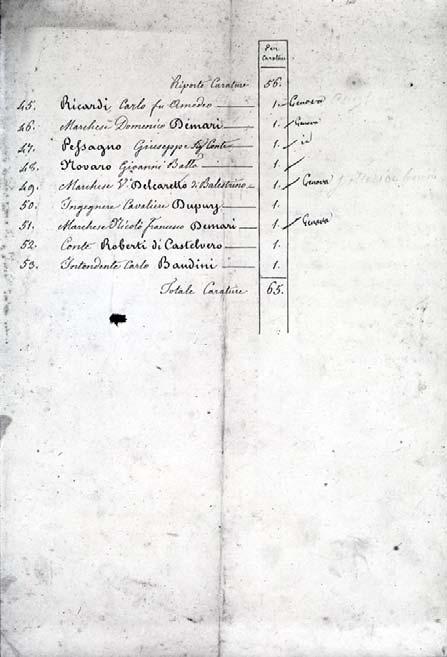 Per Carature
Riporto Carature 56.
45. Ricardi Carlo fu Amedeo 1. Genova
46. Marchese Domenico Demari 1. Genova
47. Pessagno Giuseppe Conte 1. id
48. Novaro Giovanni Batta 1.
49. Marchese V. Delcaretto di Balestrino 1. Genova
50. Ingegnere Cavaliere Dupuy 1.
51. Marchese Nicolò Francesco Demari 1. Genova
52. Conte Roberti di Castelvero 1.
53. Intendente Carlo Bandini 1.
Totale Carature 65.